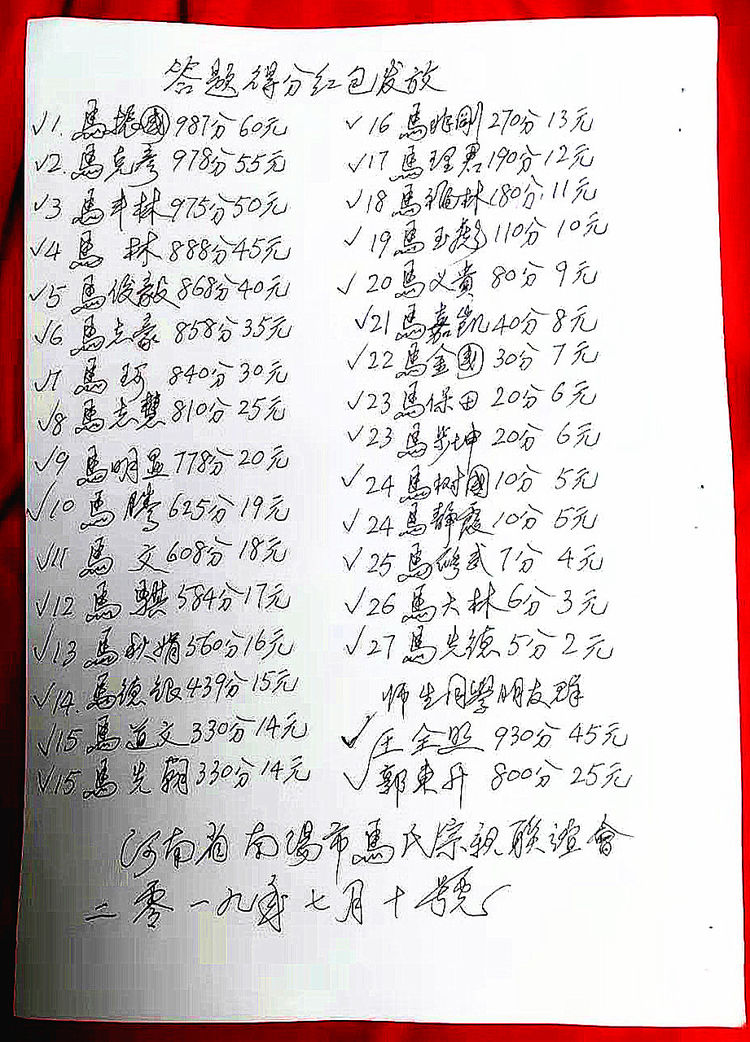 答题得分红包发放
√1. 馬振國 987分 60元
√2. 馬克彦 978分 55元
√3 馬丰林 975分 50元
√4 馬 林 888分 45元
√5 馬俊毅 868分 40元
√6 馬志豪 858分 35元
√7 馬 珂 840分 30元
√8 馬志慧 810分 25元
√9 馬明显 778分 20元
√10 馬 腾 625分 19元
√11 馬 文 608分 18元
√12 馬 騏 584分 17元
√13 馬秋娟 560分 16元
√14. 馬德银 439分 15元
√15 馬道文 330分 14元
√15 馬先朝 330分 14元
√16 馬昨刚 270分 13元
√17 馬理君 190分 12元
√18 馬福林 180分 11元
√19 馬玉彪 110分 10元
√20 馬义贵 80分 9元
√21 馬嘉凯 40分 8元
√22 馬金國 30分 7元
√23 馬保田 20分 6元
√23 馬步坤 20分 6元
√24 馬树國 10分 5元
√24 馬静霞 10分 5元
√25 馬 武 7分 4元
√26 馬大林 6分 3元
√27 馬先德 5分 2元
师生同學朋友群
√王全照 930分 45元
√郭東升 800分 25元
河南省南陽市馬氏宗親聯誼會
二零一九年七月十號